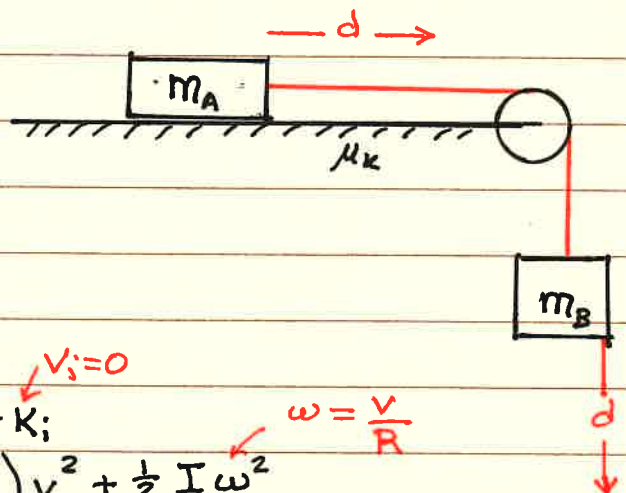 d →
m_A
μ_k
m_B
v_i = 0
K_i
ω = v/R
d
) v² + ½ I ω²